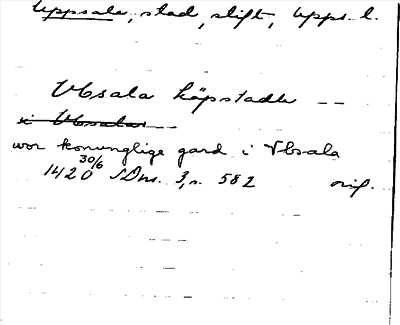 Uppsala, stad, stift, Upps. l.
Vbsala köpstadh --
i Vbsala --
wor konunglige gard i Vbsala
1420 30/6 SDns. 3, s. 582 orig.